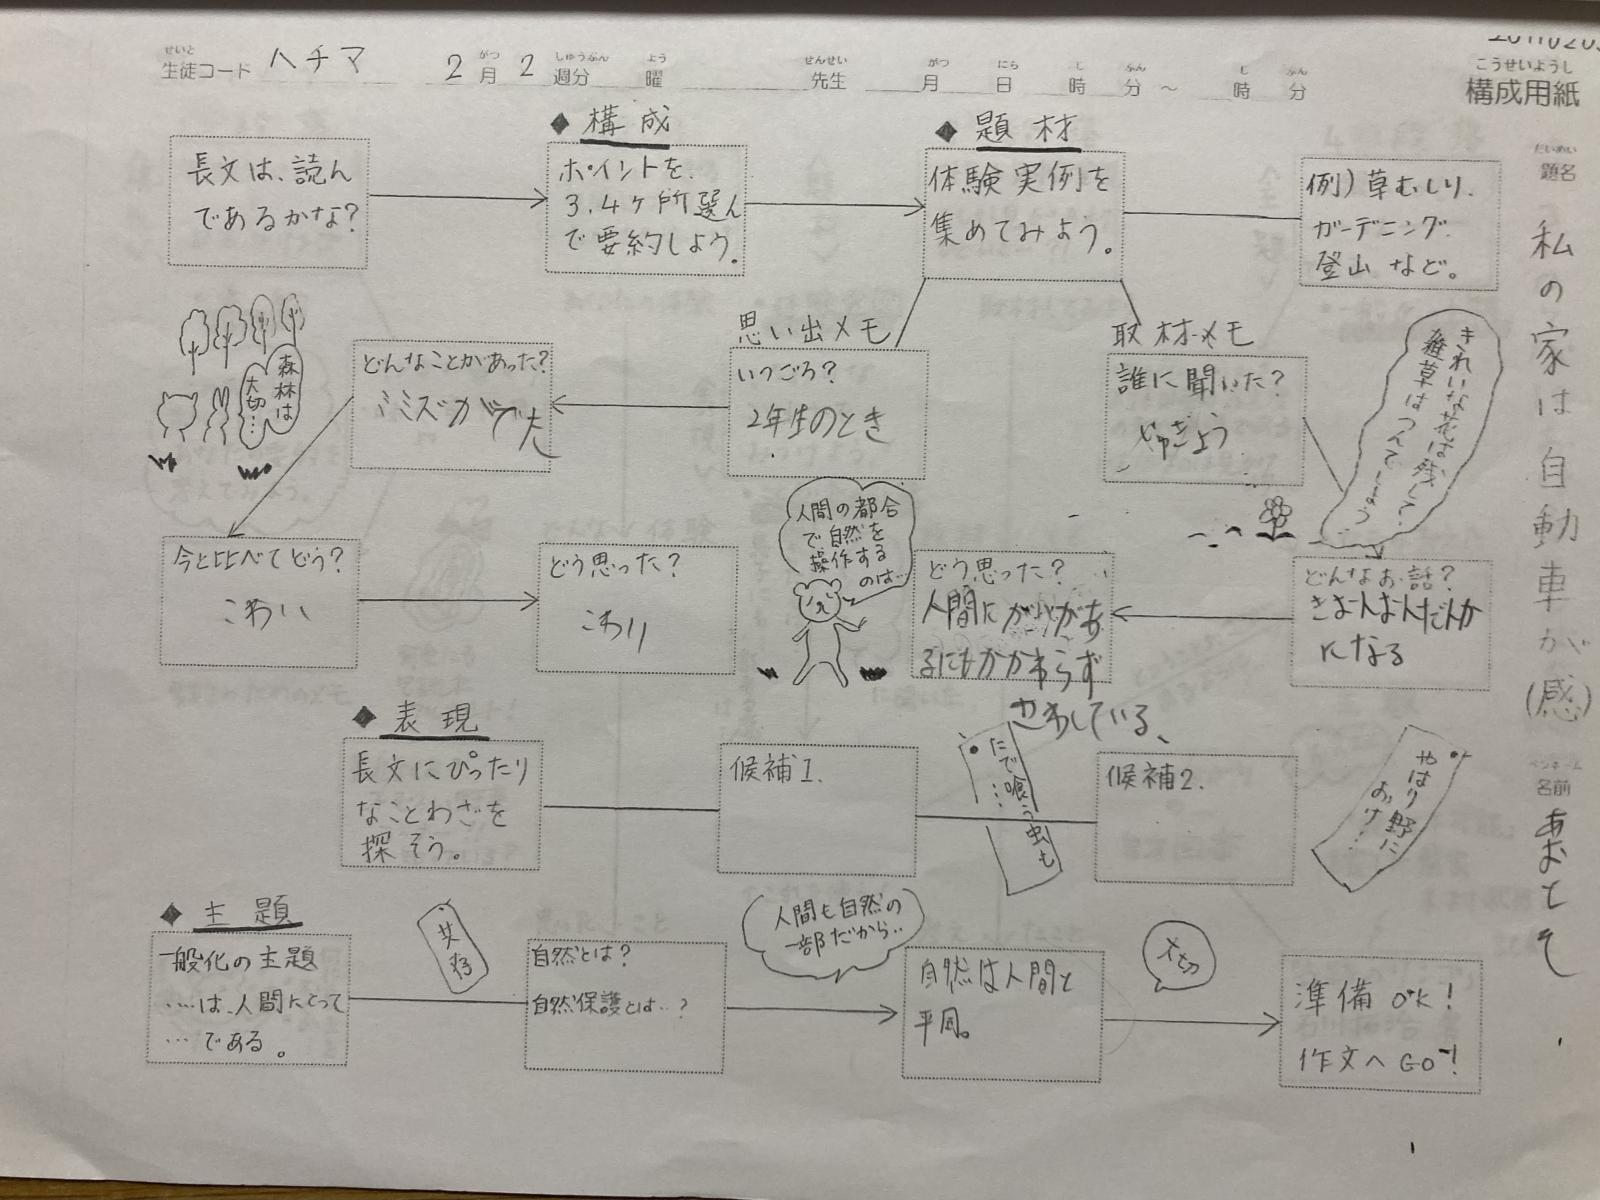 せいと がつ しゅうぶん よう せんせい がつ にち じ ふん じ ふん
生徒コード ハチマ 2月2週分 曜 先生 月 日 時 分〜 時 分
こうせいようし
構成用紙
だいめい
題名
私の家は自動車が(感)
ペンネーム
名前
◆構成
◆題材
長文は、読ん
であるかな?
ポイントを、
3、4ケ所選ん
で要約しよう。
体験実例を
集めてみよう。
例)草むしり、
ガーデニング、
登山など。
森林は
大切…
どんなことがあった?
ミミズがで
思い出メモ
いつごろ?
2年生のとき
取材メモ
誰に聞いた?
きれいな花は残して、
雑草はつんでしまう
今と比べてどう?
こわい
どう思った?
こわい
人間の都合
で自然を
操作する
のは…
どう思った?
人間に
るにもかかわらず
している、
どんなお話?
になる
◆表現
長文にぴったり
なことわざを
探そう。
候補1.
たで喰う虫も
…
候補2.
やはり野に
おけ…
◆主題
一般化の主題
…は、人間にとって
…である。
共存
自然とは?
自然保護とは…?
人間も自然の
一部だから…
自然は人間と
大切
準備OK!
作文へGO!